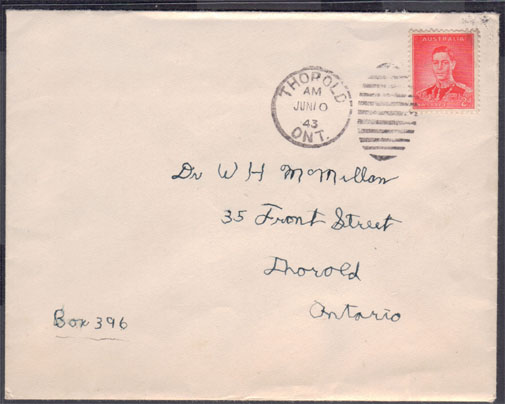 AUSTRALIA
THOROLD
AM
JUN 10
43
ONT.
Dr W H McMillan
35 Front Street
Thorold
Ontario
Box 396